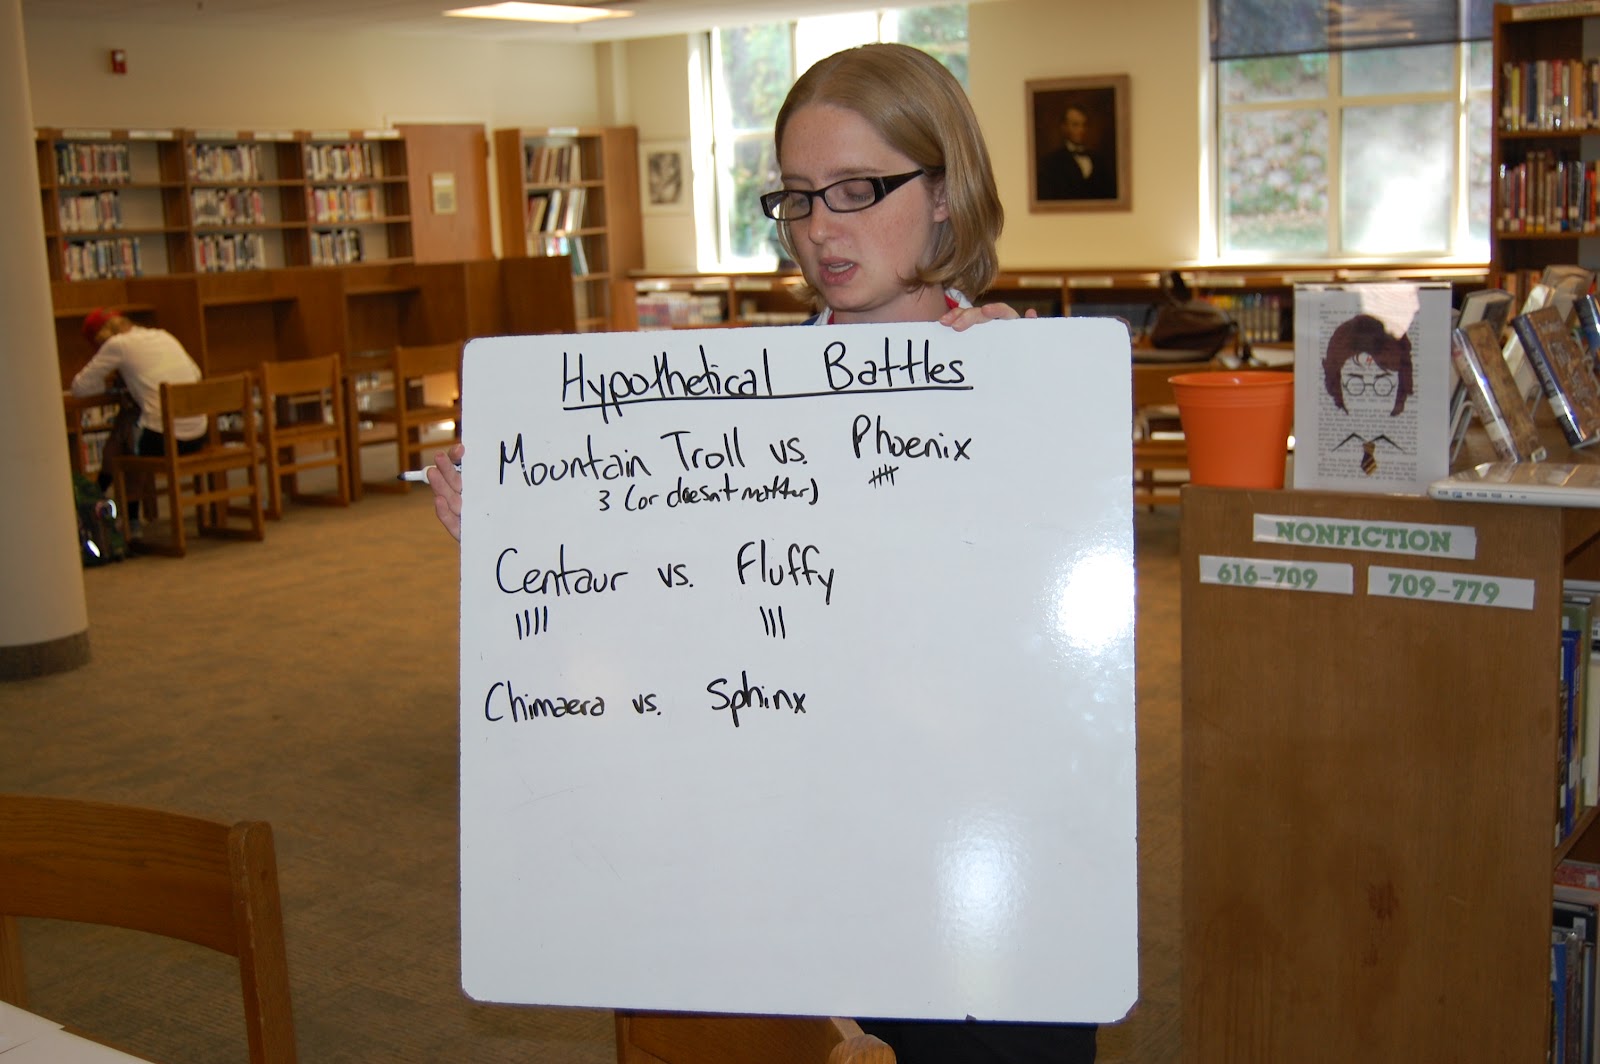 Hypothetical Battles
Mountain Troll vs. Phoenix
3 (or doesn't matter)
Centaur vs. Fluffy
Chimaera vs. Sphinx
NONFICTION
616-709
709-779